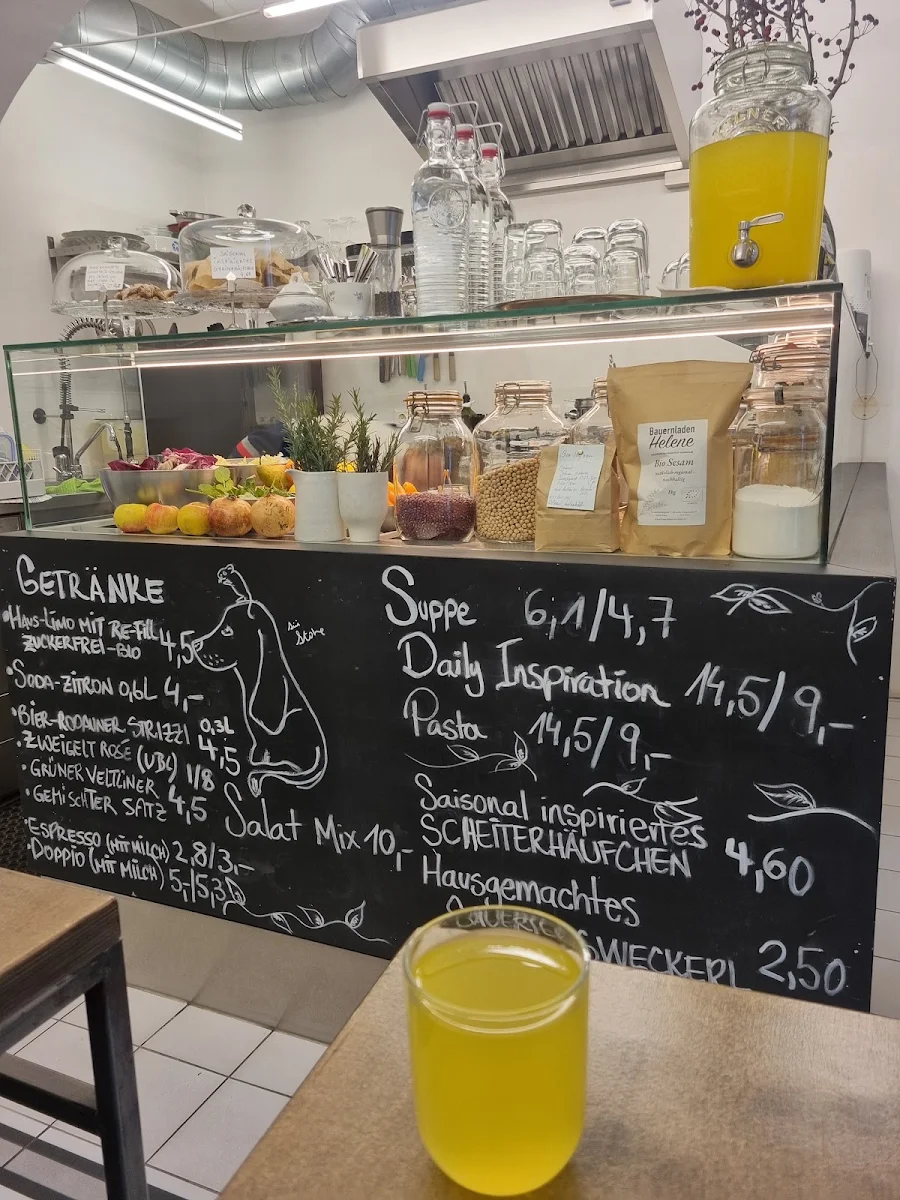 GETRÄNKE
• HAUS-LIMO MIT RE-FILL 4,5
ZUCKERFREI-BIO
• SODA-ZITRON 0,6L 4,-
• BIER-RODAUNER STRIZZI 0,3L
4,5
• ZWEIGELT ROSE (VBC) 1/8
• GRÜNER VELTLINER
• GEMISCHTER SATZ 4,5
• ESPRESSO (MIT MILCH) 2,8/3,-
• DOPPIO (MIT MILCH) 5,-/5,3
Salat Mix 10,-
Suppe 6,1/4,7
Daily Inspiration 14,5/9,-
Pasta 14,5/9,-
Saisonal inspiriertes
SCHEITERHÄUFCHEN 4,60
Hausgemachtes
SWECKERL 2,50
Bauernladen
Helene
Bio Sesam
1kg